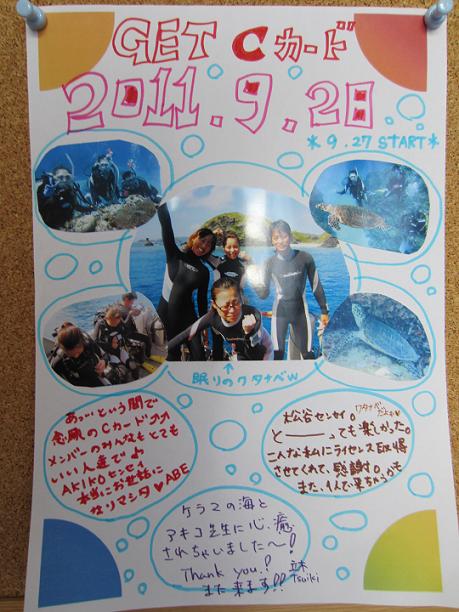 GET Cカード
2011.9.28
*9.27 START*
↑
眠りのワタナベw
あっ…という間で
念願のCカード♪♪
メンバーのみんなもとても
いい人達で♪
AKIKOセンセイ
本当にお世話に
なりマシタ♥ABE
松谷センセイ。
ワタナベ
と———っても楽しかった。
こんな私にライセンス取得
させてくれて、感謝す。
また、1人で来ちゃうかも
ケラマの海と
アキコ先生に心、癒
されちゃいました〜!
Thank you.!
また来ます!!
Tsuiki